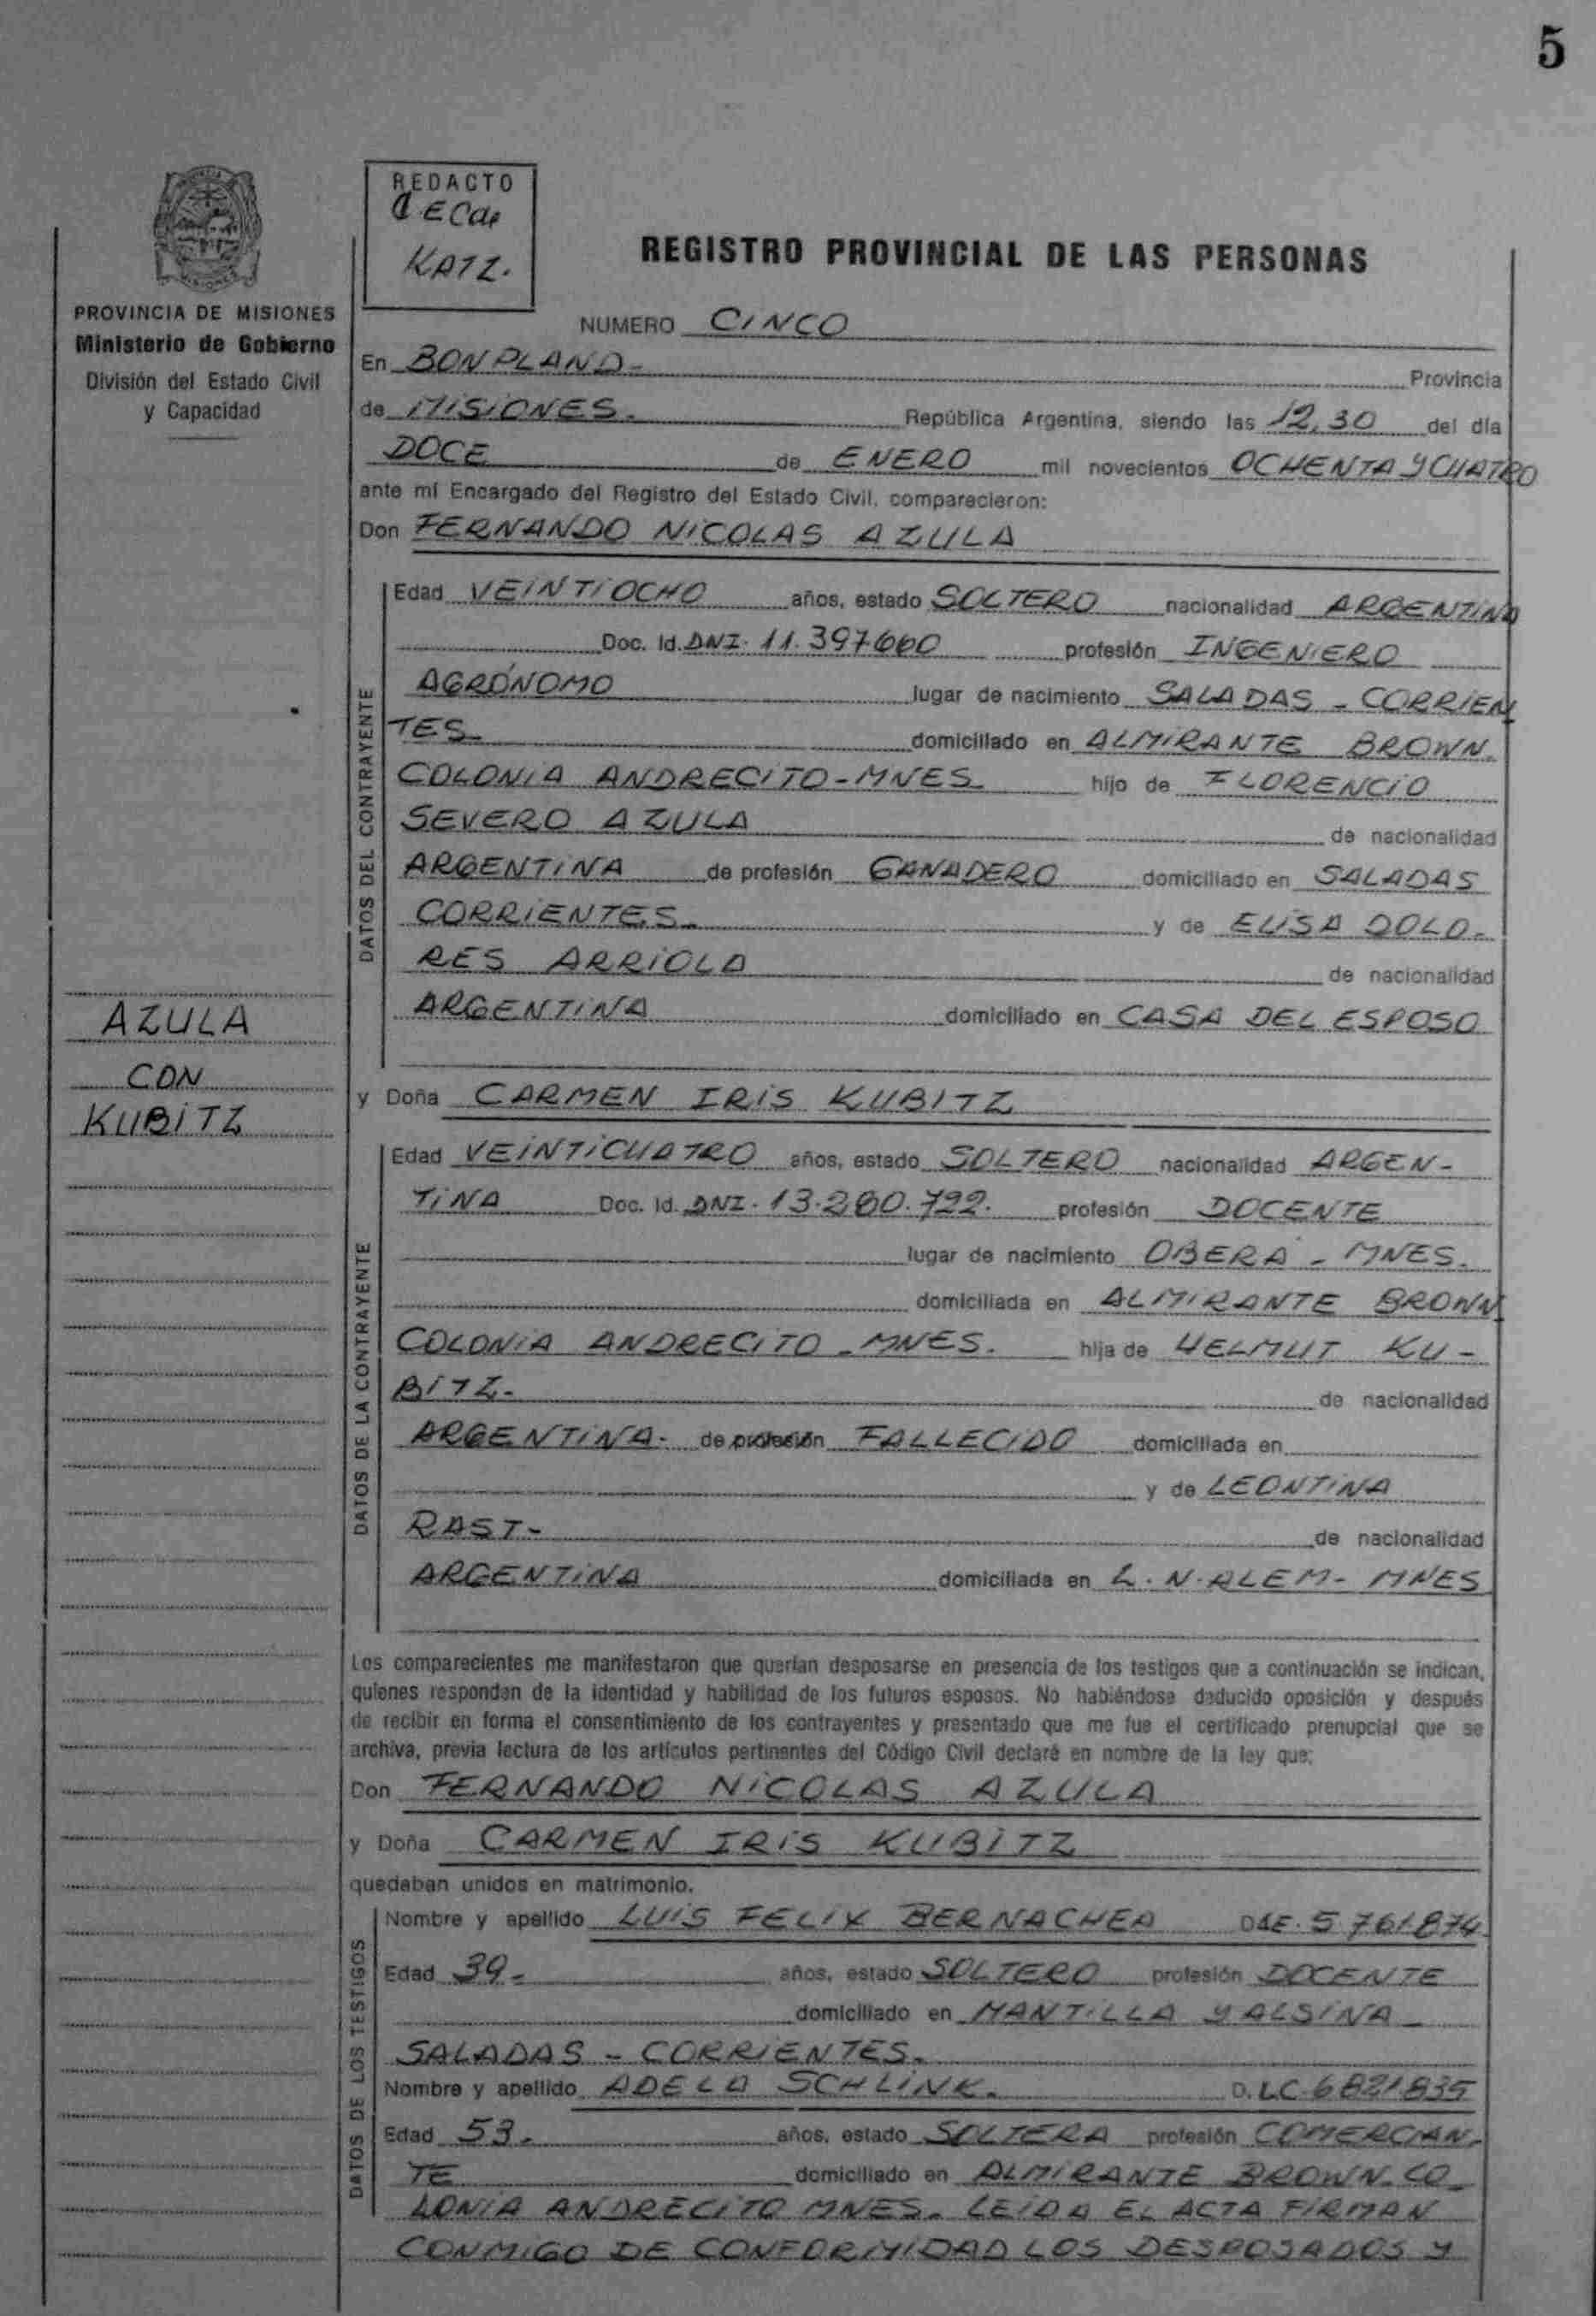 5
REDACTO
KATZ.
REGISTRO PROVINCIAL DE LAS PERSONAS
PROVINCIA DE MISIONES
Ministerio de Gobierno
División del Estado Civil
y Capacidad
NUMERO CINCO
En BONPLAND- Provincia
de MISIONES. República Argentina, siendo las 12,30 del día
DOCE de ENERO mil novecientos OCHENTA Y CUATRO
ante mí Encargado del Registro del Estado Civil, comparecieron:
Don FERNANDO NICOLAS AZULA
DATOS DEL CONTRAYENTE
Edad VEINTIOCHO años, estado SOLTERO nacionalidad ARGENTINO
Doc. Id. DNI. 11.397660 profesión INGENIERO
AGRÓNOMO lugar de nacimiento SALADAS - CORRIEN
TES- domiciliado en ALMIRANTE BROWN.
COLONIA ANDRECITO-MNES. hijo de FLORENCIO
SEVERO AZULA de nacionalidad
ARGENTINA de profesión GANADERO domiciliado en SALADAS
CORRIENTES- y de ELISA DOLO-
RES ARRIOLA de nacionalidad
ARGENTINA domiciliado en CASA DEL ESPOSO
AZULA
CON
KUBITZ
y Doña CARMEN IRIS KUBITZ
DATOS DE LA CONTRAYENTE
Edad VEINTICUATRO años, estado SOLTERO nacionalidad ARGEN-
TINA Doc. Id. DNI. 13.280.722. profesión DOCENTE
lugar de nacimiento OBERÁ - MNES.
domiciliada en ALMIRANTE BROWN
COLONIA ANDRECITO - MNES. hija de HELMUT KU-
BITZ- de nacionalidad
ARGENTINA- de profesión FALLECIDO domiciliada en
y de LEONTINA
RAST- de nacionalidad
ARGENTINA domiciliada en L.N.ALEM- MNES
Los comparecientes me manifestaron que querían desposarse en presencia de los testigos que a continuación se indican,
quienes responden de la identidad y habilidad de los futuros esposos. No habiéndose deducido oposición y después
de recibir en forma el consentimiento de los contrayentes y presentado que me fue el certificado prenupcial que se
archiva, previa lectura de los artículos pertinentes del Código Civil declaré en nombre de la ley que:
Don FERNANDO NICOLAS AZULA
y Doña CARMEN IRIS KUBITZ
quedaban unidos en matrimonio.
DATOS DE LOS TESTIGOS
Nombre y apellido LUIS FELIX BERNACHEA 5.761.874
Edad 39- años, estado SOLTERO profesión DOCENTE
domiciliado en MANTILLA Y ALSINA -
SALADAS - CORRIENTES.
Nombre y apellido ADELA SCHLINK. D. LC 6821835
Edad 53- años, estado SOLTERA profesión COMERCIAN-
TE domiciliado en ALMIRANTE BROWN-CO-
LONIA ANDRECITO MNES. LEIDA EL ACTA FIRMAN
CONMIGO DE CONFORMIDAD LOS DESPOSADOS Y